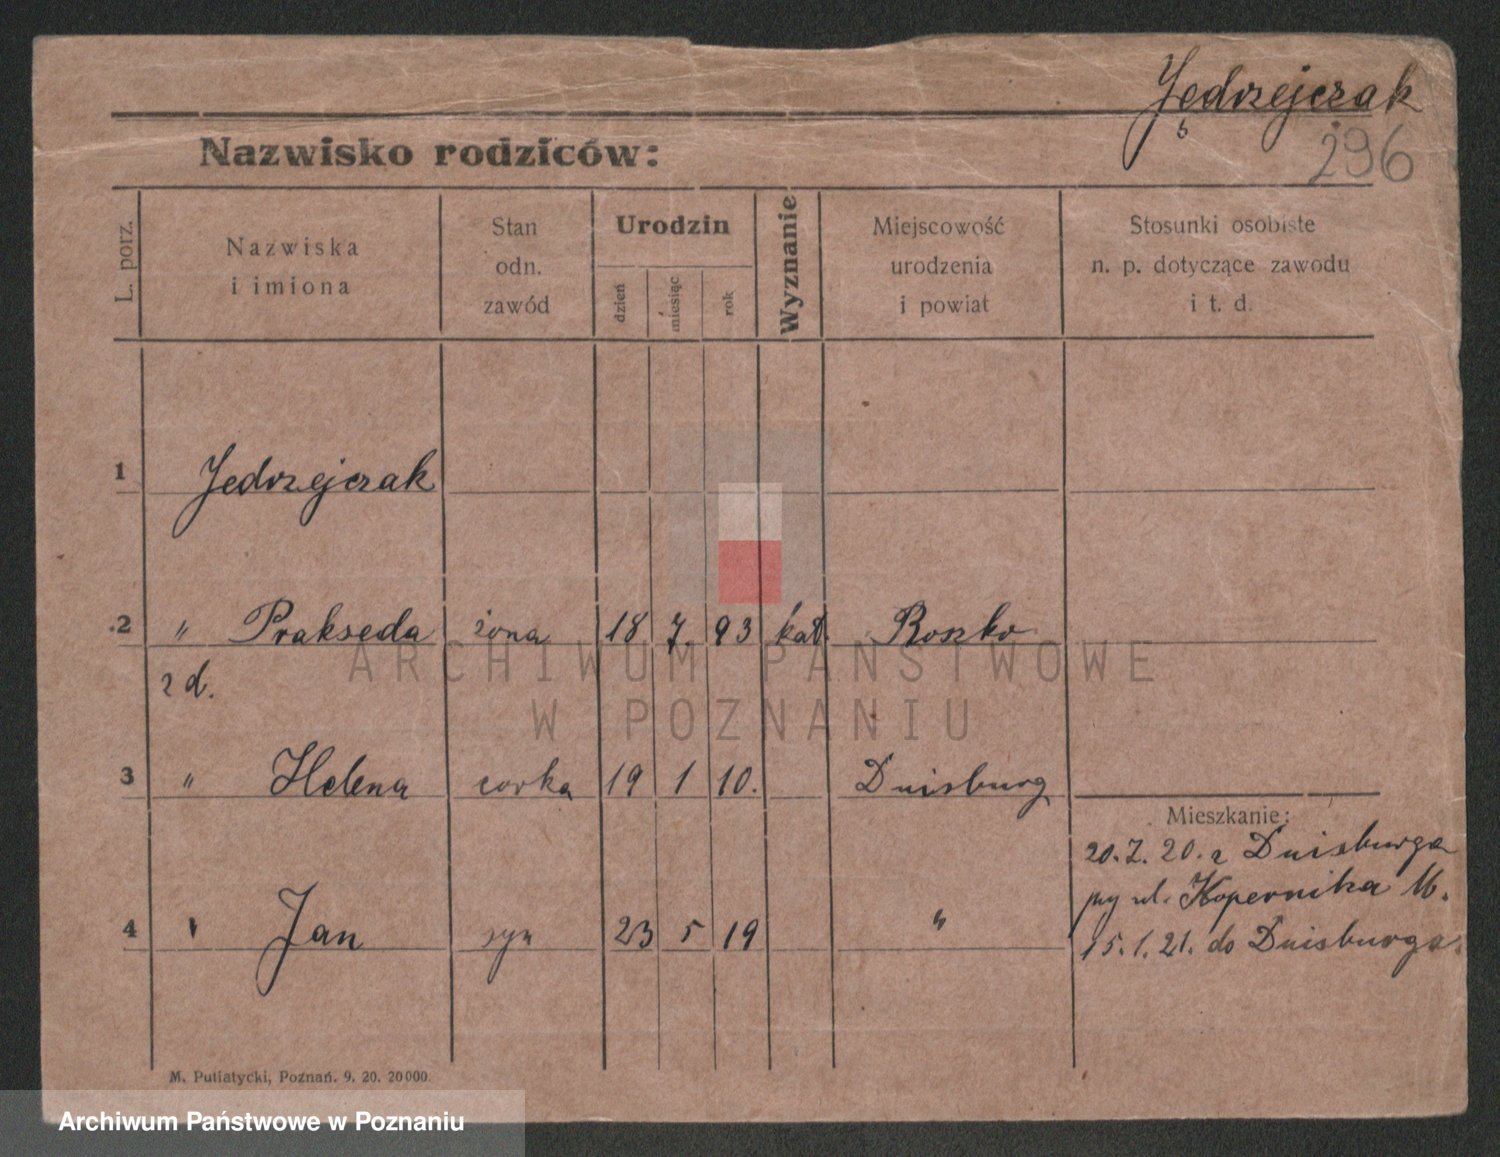 Jędrzejczak
296
Nazwisko rodziców:
L. porz.
Nazwiska
i imiona
Stan
odn.
zawód
Urodzin
dzień
miesiąc
rok
Wyznanie
Miejscowość
urodzenia
i powiat
Stosunki osobiste
n. p. dotyczące zawodu
i t. d.
1 Jedrzejczak
2 " Prakseda żona 18 7. 93 kat. Roszko
z d.
3 " Helena corka 19 1 10. Duisburg
Mieszkanie:
20. 7. 20. z Duisburga
ul. Kopernika 16.
4 " Jan syn 23 5 19 "
15. 1. 21. do Duisburga.
M. Putiatycki, Poznań. 9. 20. 20000.
ARCHIWUM PAŃSTWOWE
W POZNANIU
Archiwum Państwowe w Poznaniu